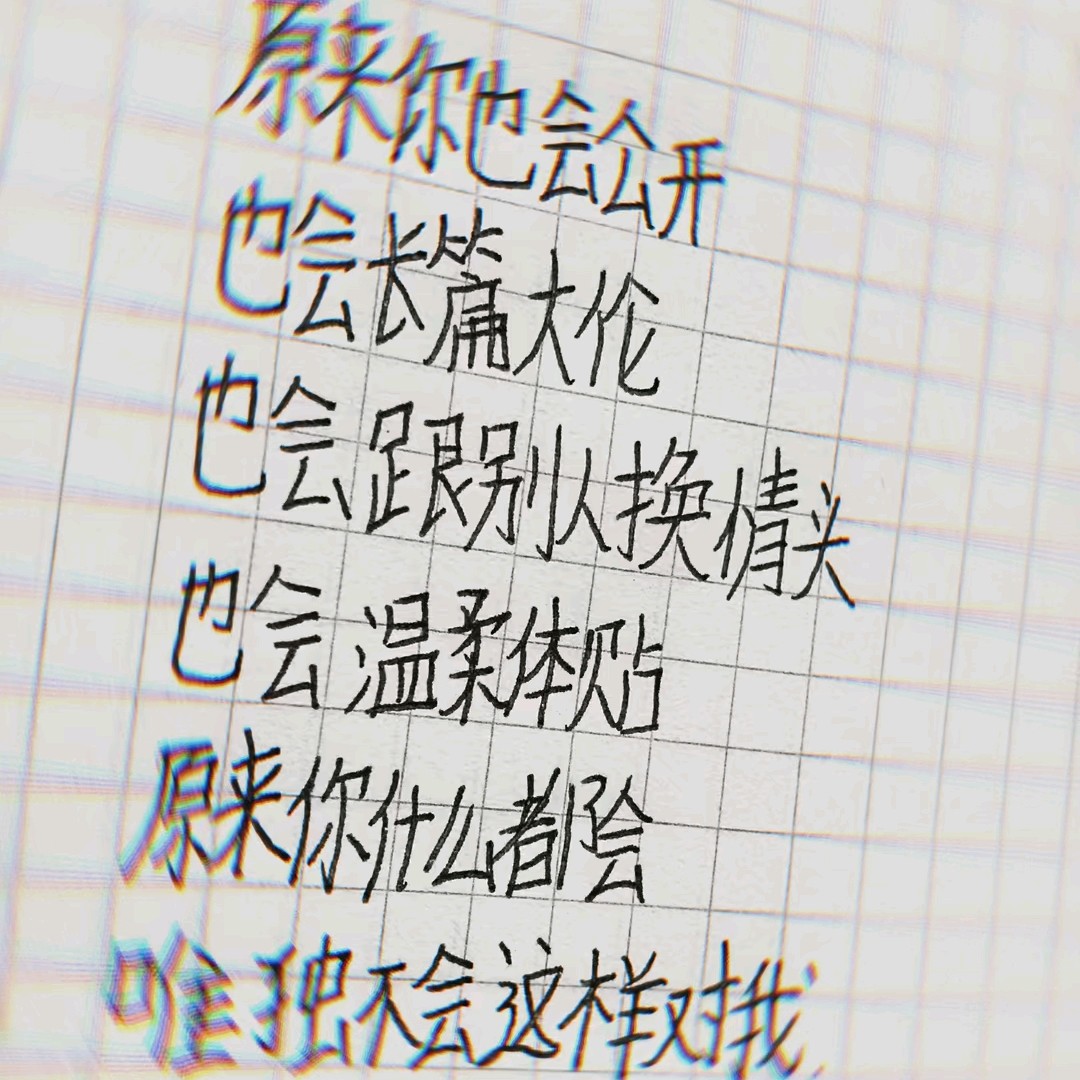 原来你也会公开
也会长篇大伦
也会跟别人换情头
也会温柔体贴
原来你什么都会
唯独不会这样对我